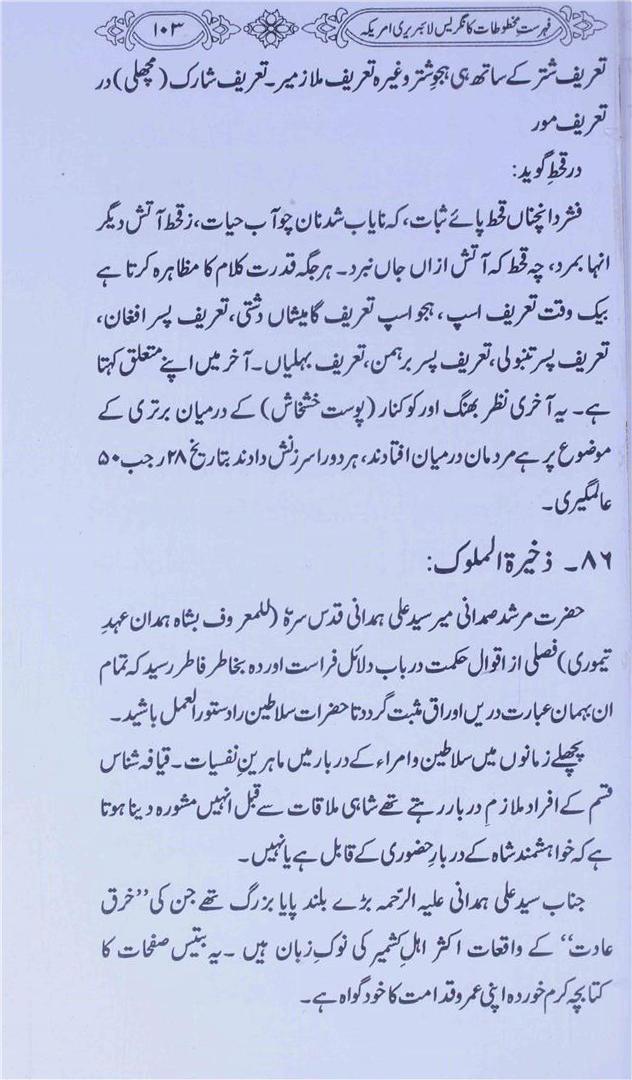 فہرست مخطوطات کانگریس لائبریری امریکہ
۱۰۳
تعریف شتر کے ساتھ ہی ہجو شتر وغیرہ تعریف ملا زمیر۔ تعریف شارک (مچھلی) در
تعریف مور
در قحط گوید:
فشرد انچناں قحط پائے ثبات، کہ نایاب شد نان چو آب حیات، ز قحط آتش دیگر
انہا بمرد، چہ قحط کہ آتش ازاں جاں نبرد۔ ہر جگہ قدرت کلام کا مظاہرہ کرتا ہے
بیک وقت تعریف اسپ، ہجو اسپ تعریف گامیشاں دشتی، تعریف پسر افغان،
تعریف پسر تنبولی، تعریف پسر برہمن، تعریف بہلیاں۔ آخر میں اپنے متعلق کہتا
ہے۔ یہ آخری نظر بھنگ اور کوکنار (پوست خشخاش) کے درمیان برتری کے
موضوع پر ہے مردمان درمیان افتادند، ہر دورا سرزنش دادند بتاریخ ۲۸ رجب ۵۰
عالمگیری۔
۸۶۔ ذخیرۃ الملوک:
حضرت مرشد صمدانی میر سید علی ہمدانی قدس سرہٗ (للمعروف بشاہ ہمدان عہدِ
تیموری) فصلی از اقوالِ حکمت در باب دلائل فراست اوردہ بخاطر فاطر رسید کہ تمام
ان بہمان عبارت دریں اوراق مثبت گردد تا حضرات سلاطین را دستور العمل باشید۔
پچھلے زمانوں میں سلاطین و امراء کے دربار میں ماہرینِ نفسیات۔ قیافہ شناس
قسم کے افراد ملازمِ دربار رہتے تھے شاہی ملاقات سے قبل انہیں مشورہ دینا ہوتا
ہے کہ خواہشمند شاہ کے دربارِ حضوری کے قابل ہے یا نہیں۔
جناب سید علی ہمدانی علیہ الرّحمہ بڑے بلند پایا بزرگ تھے جن کی ’’خرق
عادت‘‘ کے واقعات اکثر اہلِ کشمیر کی نوکِ زبان ہیں ۔یہ بتیس صفحات کا
کتابچہ کرم خوردہ اپنی عمر و قدامت کا خود گواہ ہے۔